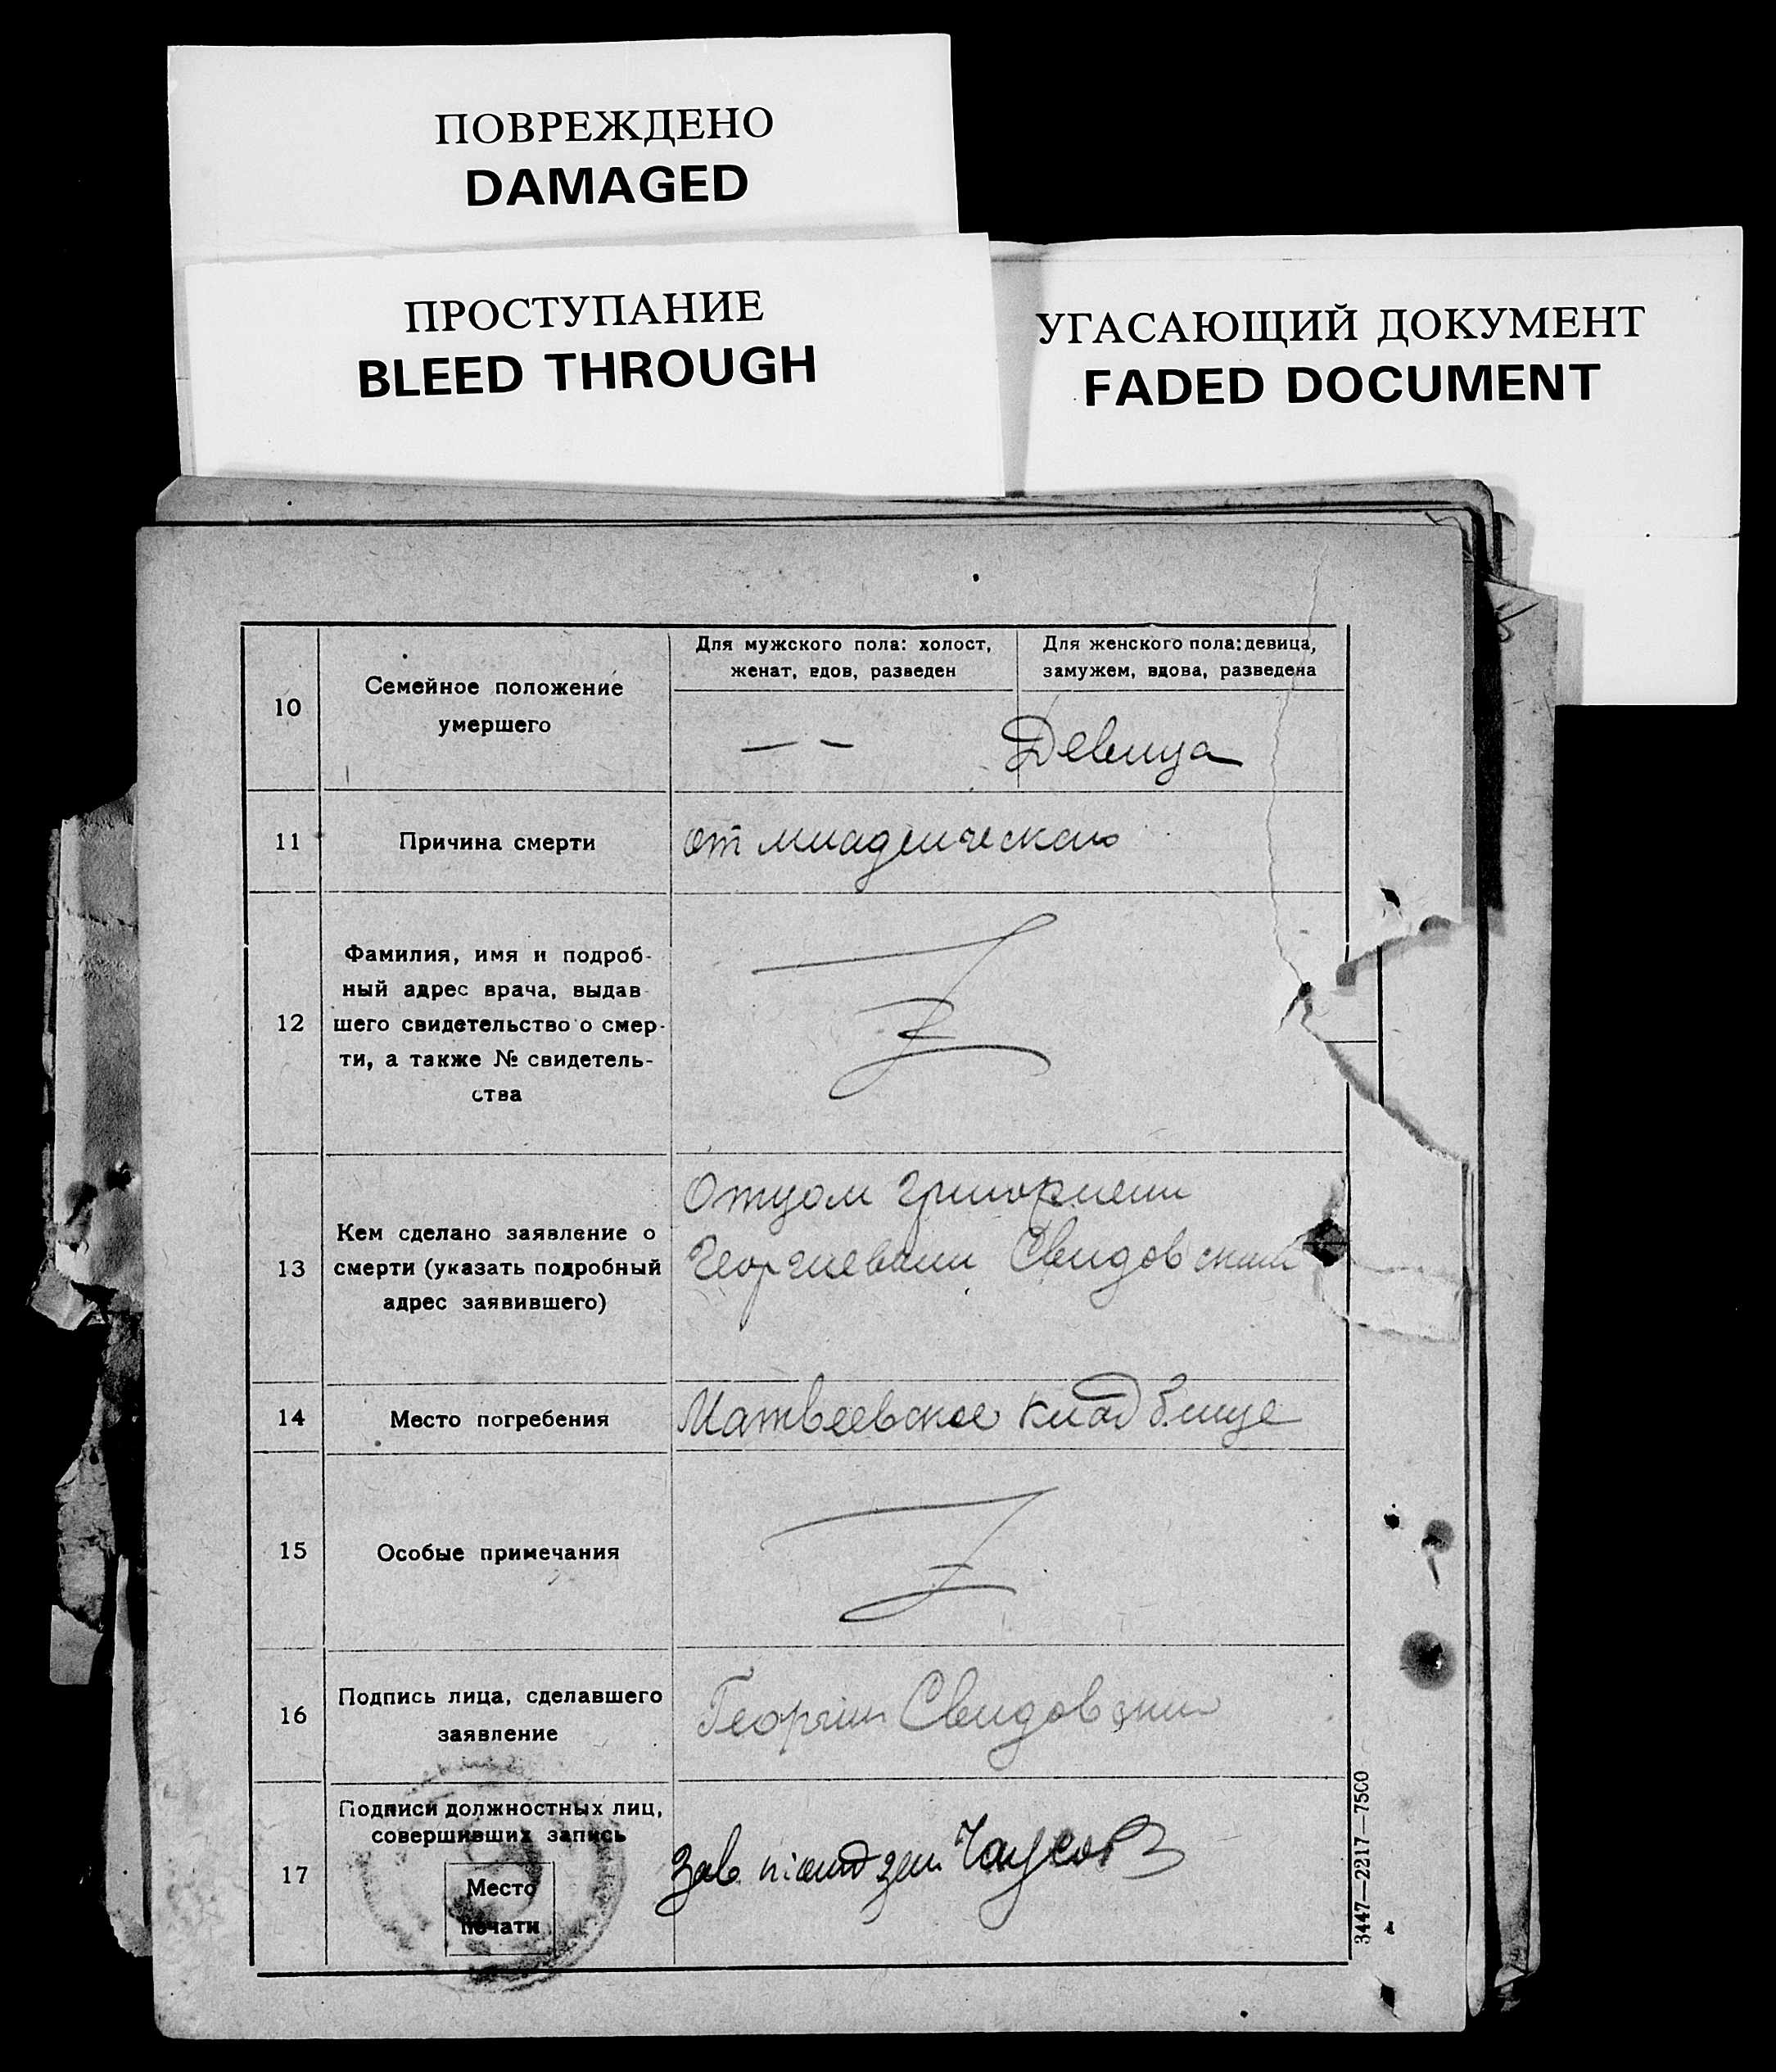 ПОВРЕЖДЕНО
DAMAGED
ПРОСТУПАНИЕ
BLEED THROUGH
УГАСАЮЩИЙ ДОКУМЕНТ
FADED DOCUMENT
10
Семейное положение
умершего
Для мужского пола: холост,
женат, вдов, разведен
Для женского пола: девица,
замужем, вдова, разведена
— –
Девица
11
Причина смерти
от младенческаго
12
Фамилия, имя и подроб-
ный адрес врача, выдав-
шего свидетельство о смер-
ти, а также № свидетель-
ства
13
Кем сделано заявление о
смерти (указать подробный
адрес заявившего)
Отцом Григорием
Георгиевым Свидовским
14
Место погребения
Матвеевское кладбище
15
Особые примечания
16
Подпись лица, сделавшего
заявление
Георгий Свидовский
17
Подписи должностных лиц,
совершивших запись
Место
печати
Зав.
3447—2217—7500